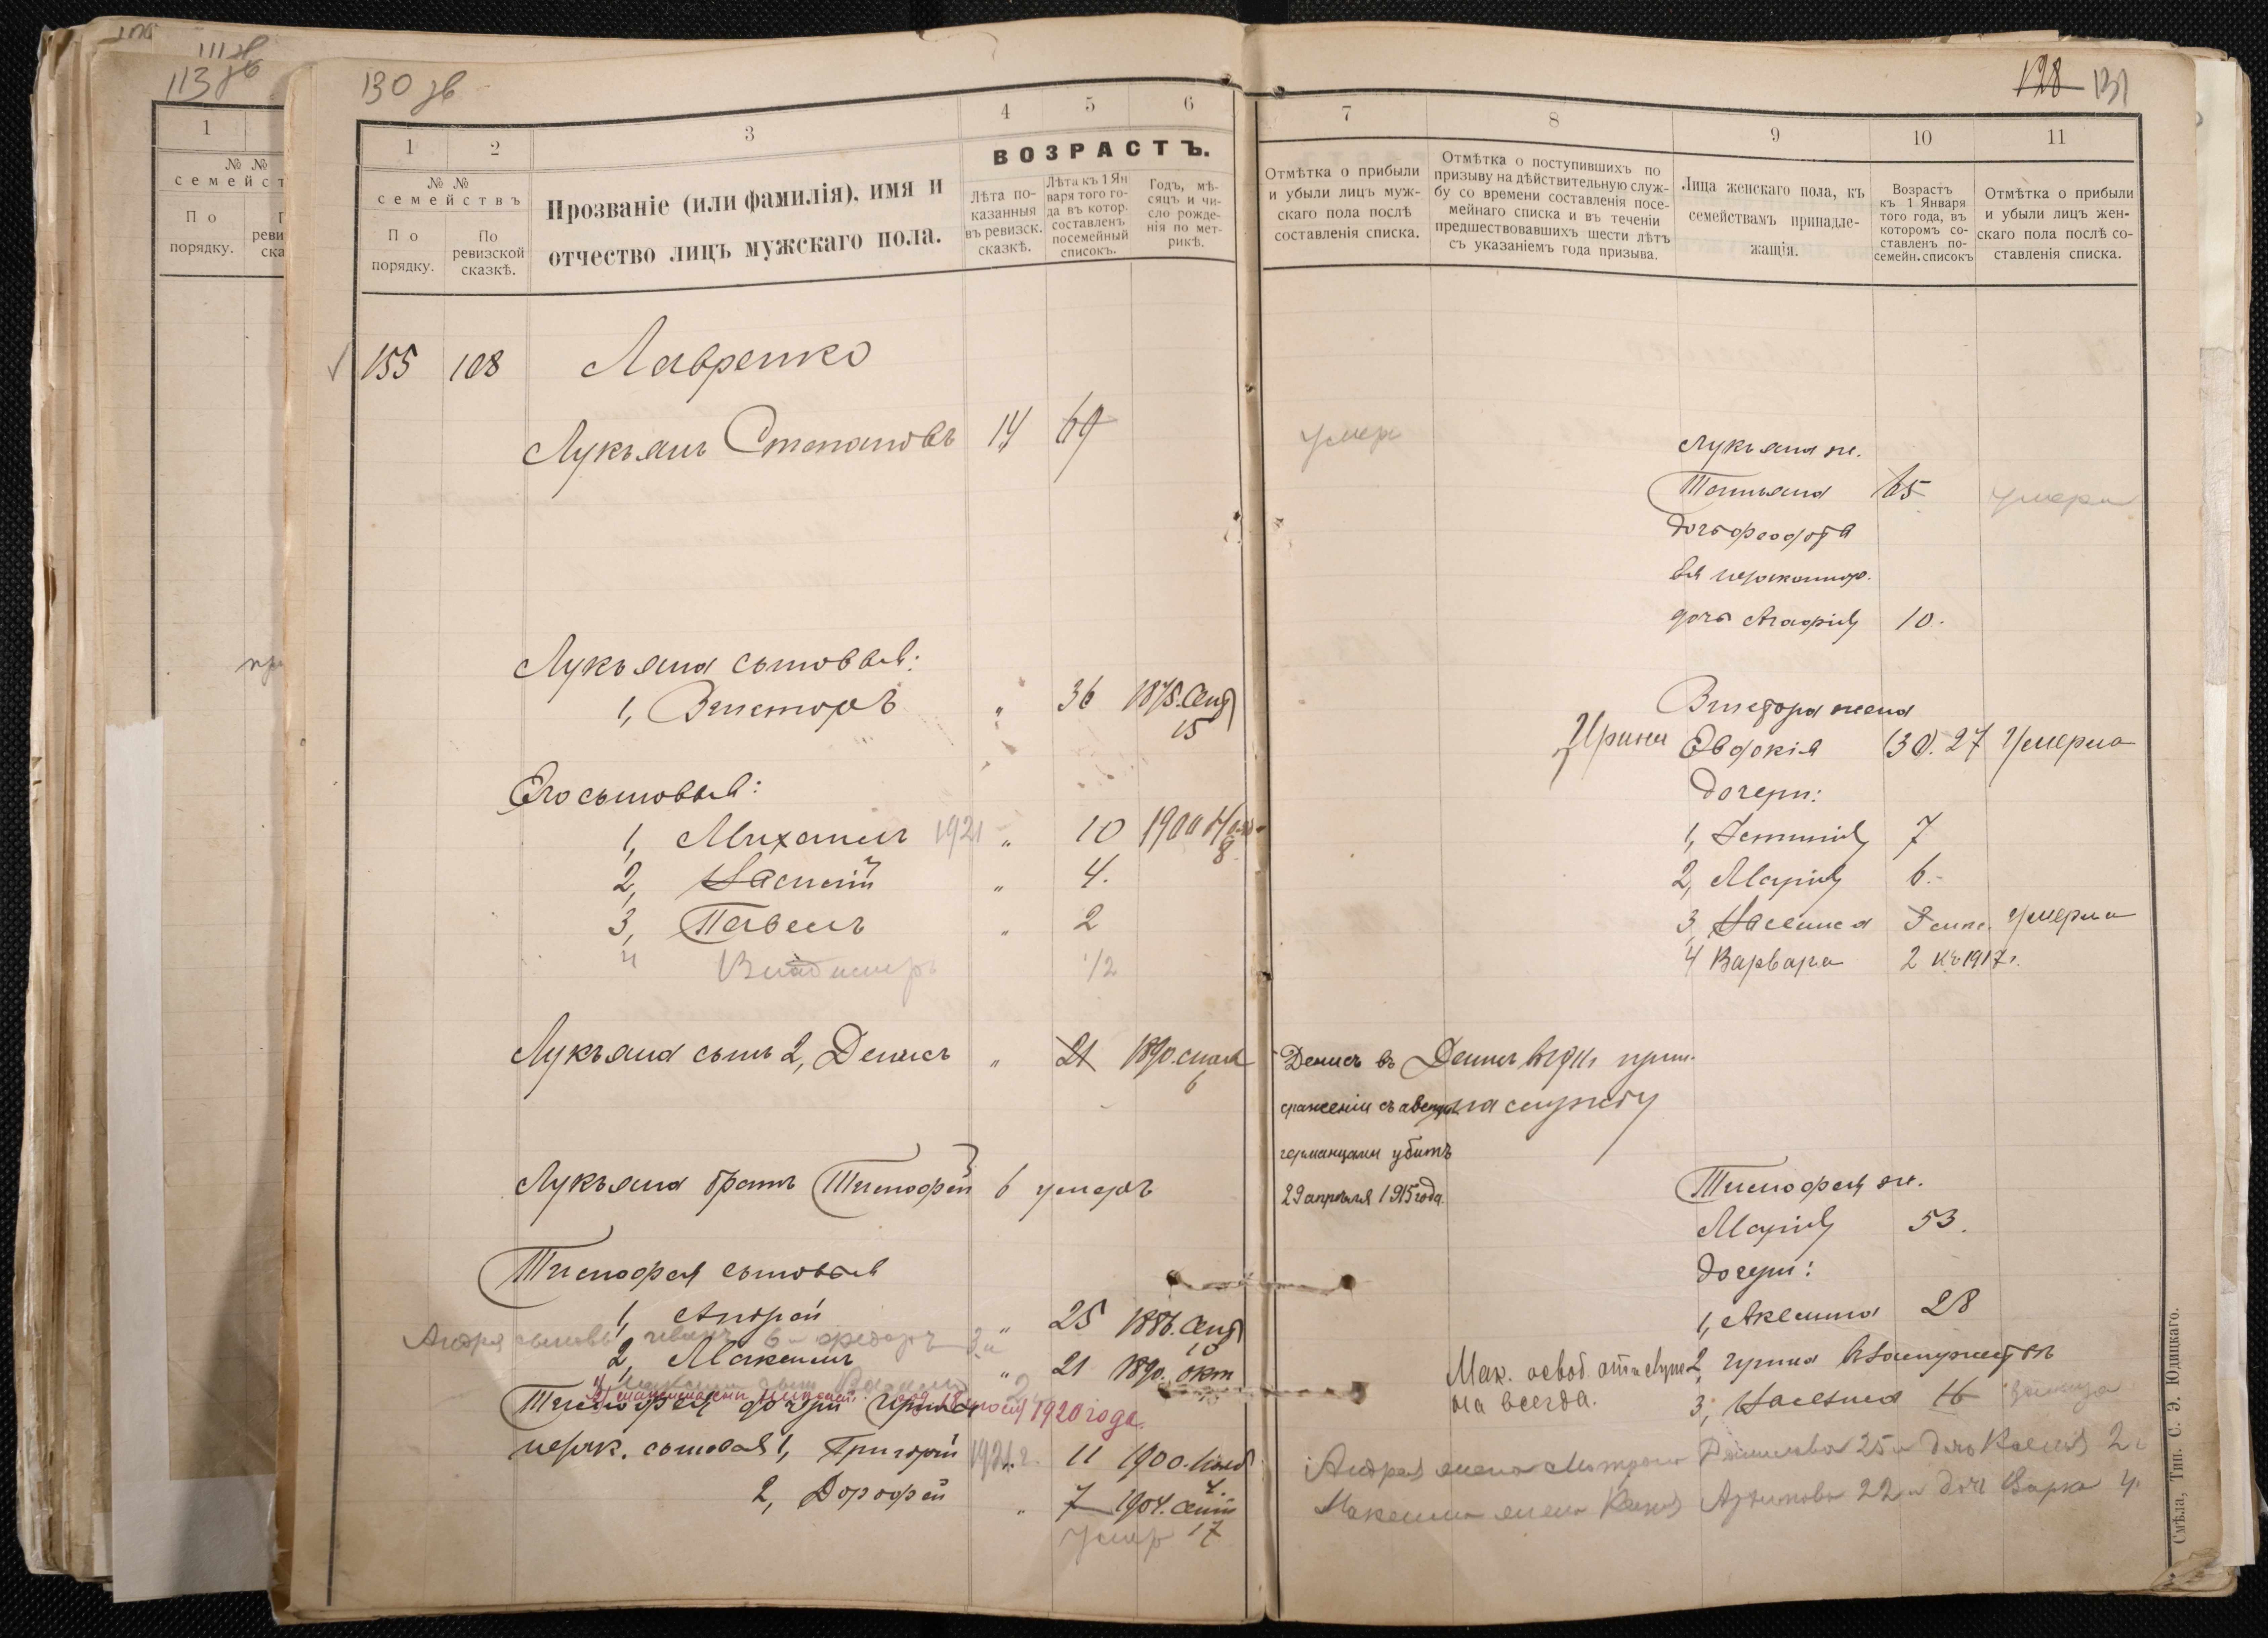 111 зв
113 зв
1
№ №
семейст
По
порядку.
130 зв
1
2
3
4
5
6
№ №
семействъ
По
порядку.
По
ревизской
сказкѣ.
Прозваніе (или фамилія), имя и
отчество лицъ мужскаго пола.
ВОЗРАСТЪ.
Лѣта по-
казанныя
въ ревизск.
сказкѣ.
Лѣта къ 1 Ян
варя того го-
да въ котор.
составленъ
посемейный
списокъ.
Годъ, мѣ-
сяцъ и чи-
сло рожде-
нія по мет-
рикѣ.
155 108 Лавренко
Лукъянъ Степановъ 14 69
Лукъяна сыновья:
1, Викторъ " 36 1875. Сент
15
Его сыновья:
1, Михаилъ 1921 " 10 1900 Нояб
8
2, Василій " 4.
3, Павелъ " 2
4 Владимиръ 1/2
Лукъяна сынъ 2, Денисъ " 21 1890.
6
Лукъяна братъ Тимофей 6 умеръ
Тимофея сыновья
1, Андрей " 25 1886. Сент
Андрея сыновья Иванъ 6 л Федоръ 3 л
2, Максимъ " 21 1890. окт
Тимофея дочери Ирины 1920 года.
незак. сыновья 1, Григорій 1921 г. 11 1900. Нояб
4.
2, Дорофей " 7 1904. Сент
умер 17
128 131
7
8
9
10
11
Отмѣтка о прибыли
и убыли лицъ муж-
скаго пола послѣ
составленія списка.
Отмѣтка о поступившихъ по
призыву на дѣйствительную служ-
бу со времени составленія посе-
мейнаго списка и въ теченіи
предшествовавшихъ шести лѣтъ
съ указаніемъ года призыва.
Лица женскаго пола, къ
семействамъ принадле-
жащія.
Возрастъ
къ 1 Января
того года, въ
которомъ со-
ставленъ по-
семейн. списокъ
Отмѣтка о прибыли
и убыли лицъ жен-
скаго пола послѣ со-
ставленія списка.
умер
Лукъяна ж.
Татьяна 65 умерла
дочь Федотья
дочь Агафія 10.
Виктора жена
Ирина Евдокія (30. 27 Умерла
дочери:
1, Устинія 7
2, Марія 6.
3, Василиса Умерла
4 Варвара 2 къ 1917 г.
Денисъ въ
сраженіи съ
германцами убитъ
29 апрѣля 1915 года.
Денисъ въ 1911 прин.
на службу
Тимофея ж.
Марія 53.
дочери:
1, Аксинія 28
Мак. освоб.
на всегда.
2, Ирина въ замужествѣ
3, 16
Андрея жена Матрона 25 л дочь 2 г
Максима жена 22 л доч Варка 4
Смѣла, Тип. С. Э. Юдицкаго.